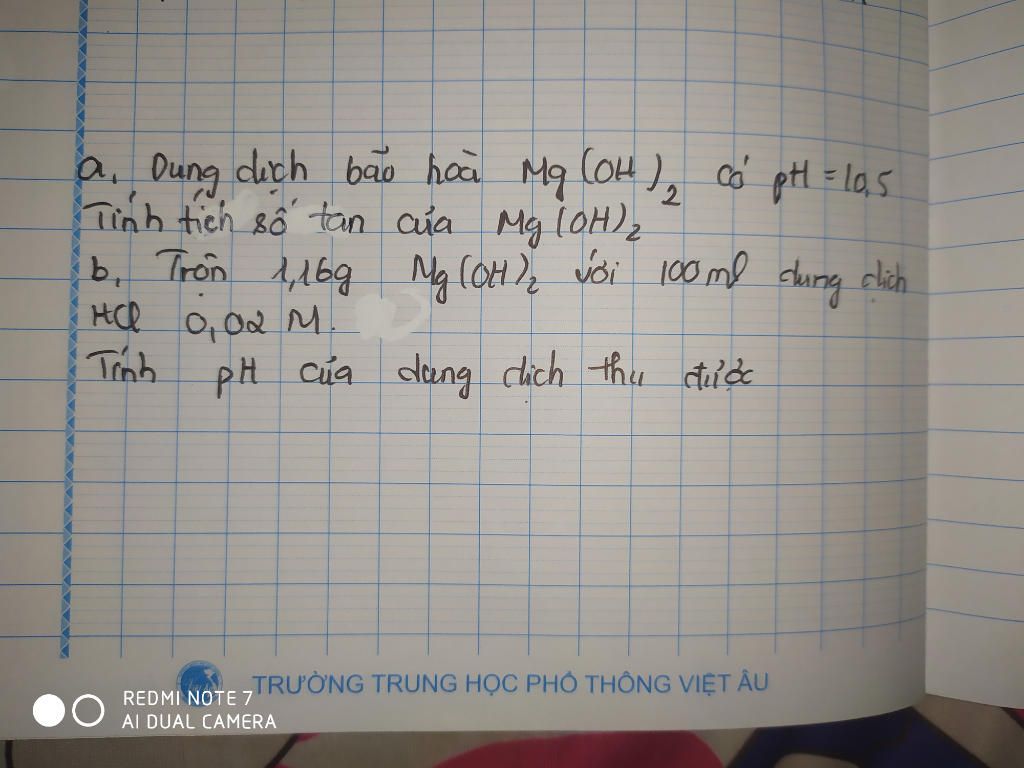 a, Dung dịch bão hoà Mg(OH)₂ có pH = 10,5
Tính tích số tan của Mg(OH)₂
b, Trộn 1,16g Mg(OH)₂ với 100ml dung dịch
HCl 0,02 M.
Tính pH của dung dịch thu được
TRƯỜNG TRUNG HỌC PHỔ THÔNG VIỆT ÂU
REDMI NOTE 7
AI DUAL CAMERA